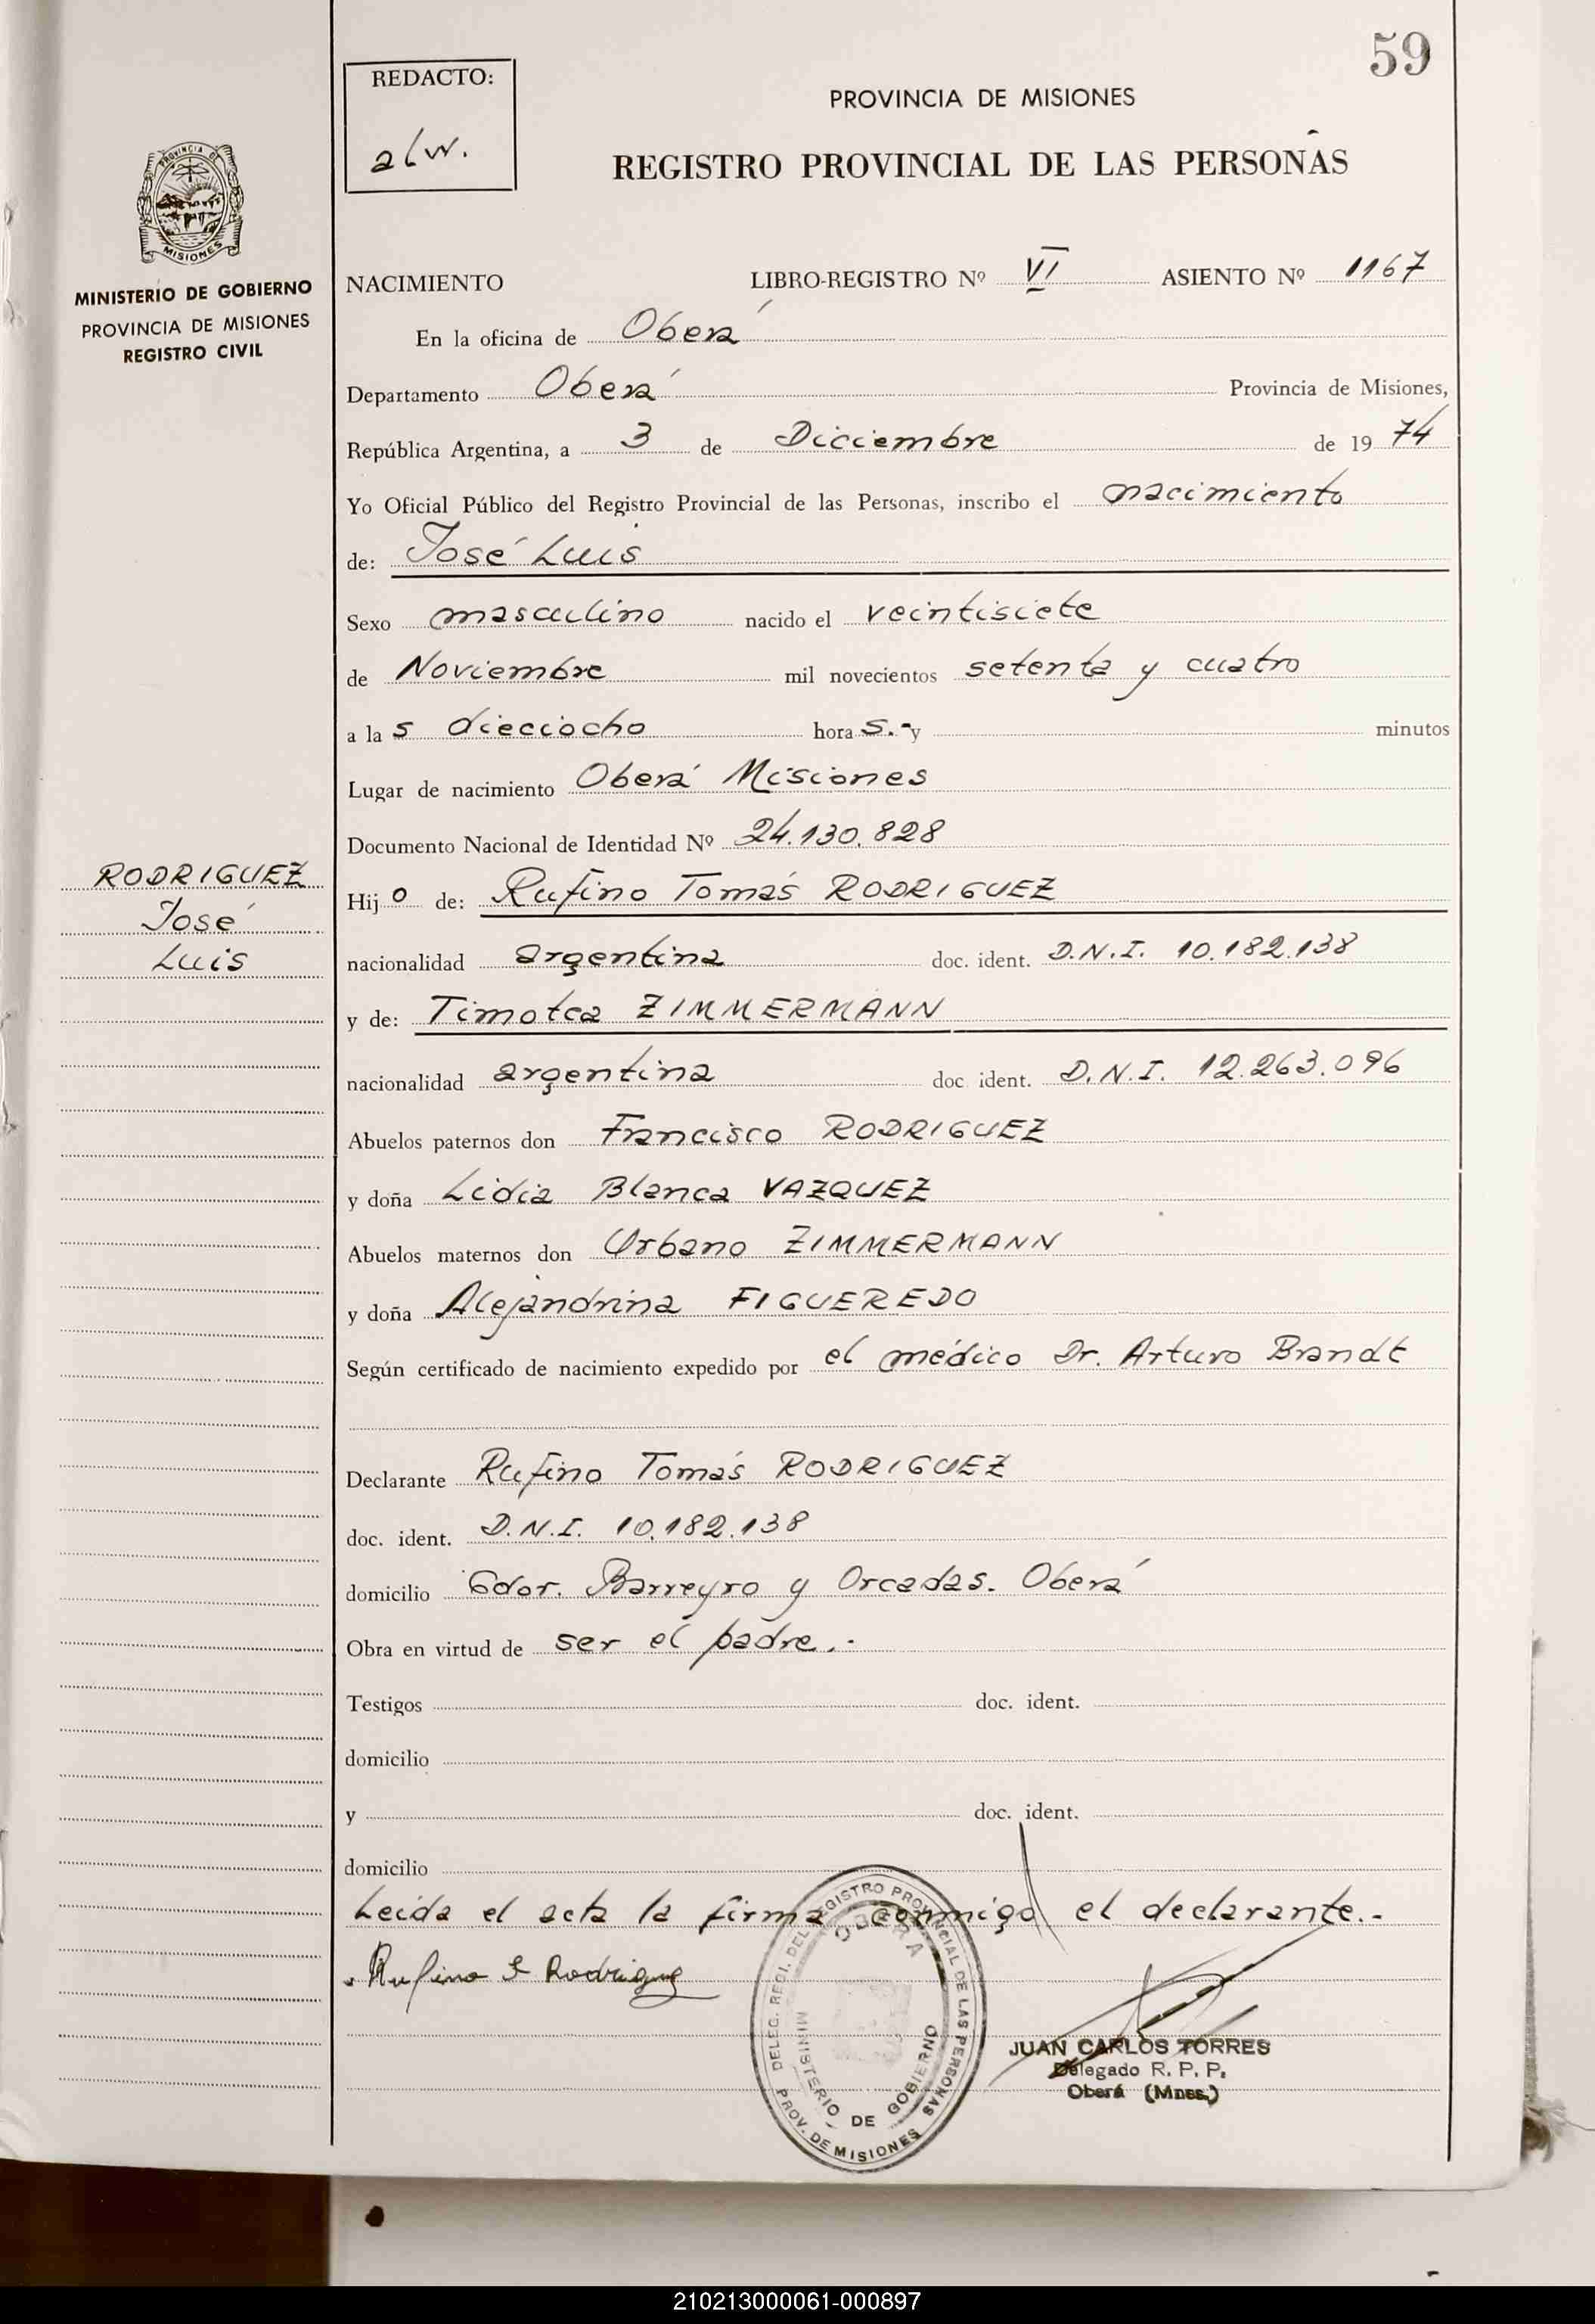 59
REDACTO:
alw.
PROVINCIA DE MISIONES
REGISTRO PROVINCIAL DE LAS PERSONAS
PROVINCIA DE
MISIONES
MINISTERIO DE GOBIERNO
PROVINCIA DE MISIONES
REGISTRO CIVIL
NACIMIENTO LIBRO-REGISTRO Nº VI ASIENTO Nº 1167
En la oficina de Oberá
Departamento Oberá Provincia de Misiones,
República Argentina, a 3 de Diciembre de 19 74
Yo Oficial Público del Registro Provincial de las Personas, inscribo el nacimiento
de: José Luis
Sexo masculino nacido el veintisiete
de Noviembre mil novecientos setenta y cuatro
a las dieciocho horas.- y minutos
Lugar de nacimiento Oberá Misiones
Documento Nacional de Identidad Nº 24.130.828
RODRIGUEZ
José
Luis
Hijo de: Rufino Tomás RODRIGUEZ
nacionalidad argentina doc. ident. D.N.I. 10.182.138
y de: Timotea ZIMMERMANN
nacionalidad argentina doc ident. D.N.I. 12.263.096
Abuelos paternos don Francisco RODRIGUEZ
y doña Lidia Blanca VAZQUEZ
Abuelos maternos don Urbano ZIMMERMANN
y doña Alejandrina FIGUEREDO
Según certificado de nacimiento expedido por el médico Dr. Arturo Brandt
Declarante Rufino Tomás RODRIGUEZ
doc. ident. D.N.I. 10.182.138
domicilio Gdor. Barreyro y Orcadas. Oberá
Obra en virtud de ser el padre.-
Testigos doc. ident.
domicilio
y doc. ident.
domicilio
Leida el acta la firma conmigo el declarante.-
Rufino T Rodriguez
DELEG. REGI. DEL REGISTRO PROVINCIAL DE LAS PERSONAS
OBERA
MINISTERIO DE GOBIERNO
PROV. DE MISIONES
JUAN CARLOS TORRES
Delegado R. P. P.
Oberá (Mnes.)
210213000061-000897